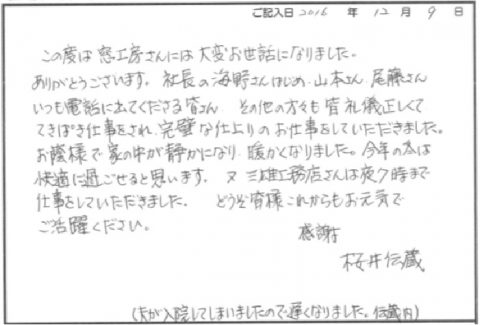 ご記入日 2016 年 12 月 9 日
この度は窓工房さんには大変お世話になりました。
ありがとうございます。社長の海野さんはじめ、山本さん、尾藤さん
いつも電話に出てくださる皆さん その他の方々も皆礼儀正しくて
てきぱき仕事をされ、完璧な仕上りのお仕事をしていただきました。
お蔭様で家の中が静かになり、暖かくなりました。今年の冬は
快適に過ごせると思います。又 三雄工務店さんは夜9時まで
仕事をしていただきました。 どうぞ皆様これからもお元気で
ご活躍ください。
感謝
桜井伝蔵
(夫が入院してしまいましたので遅くなりました。伝蔵内)